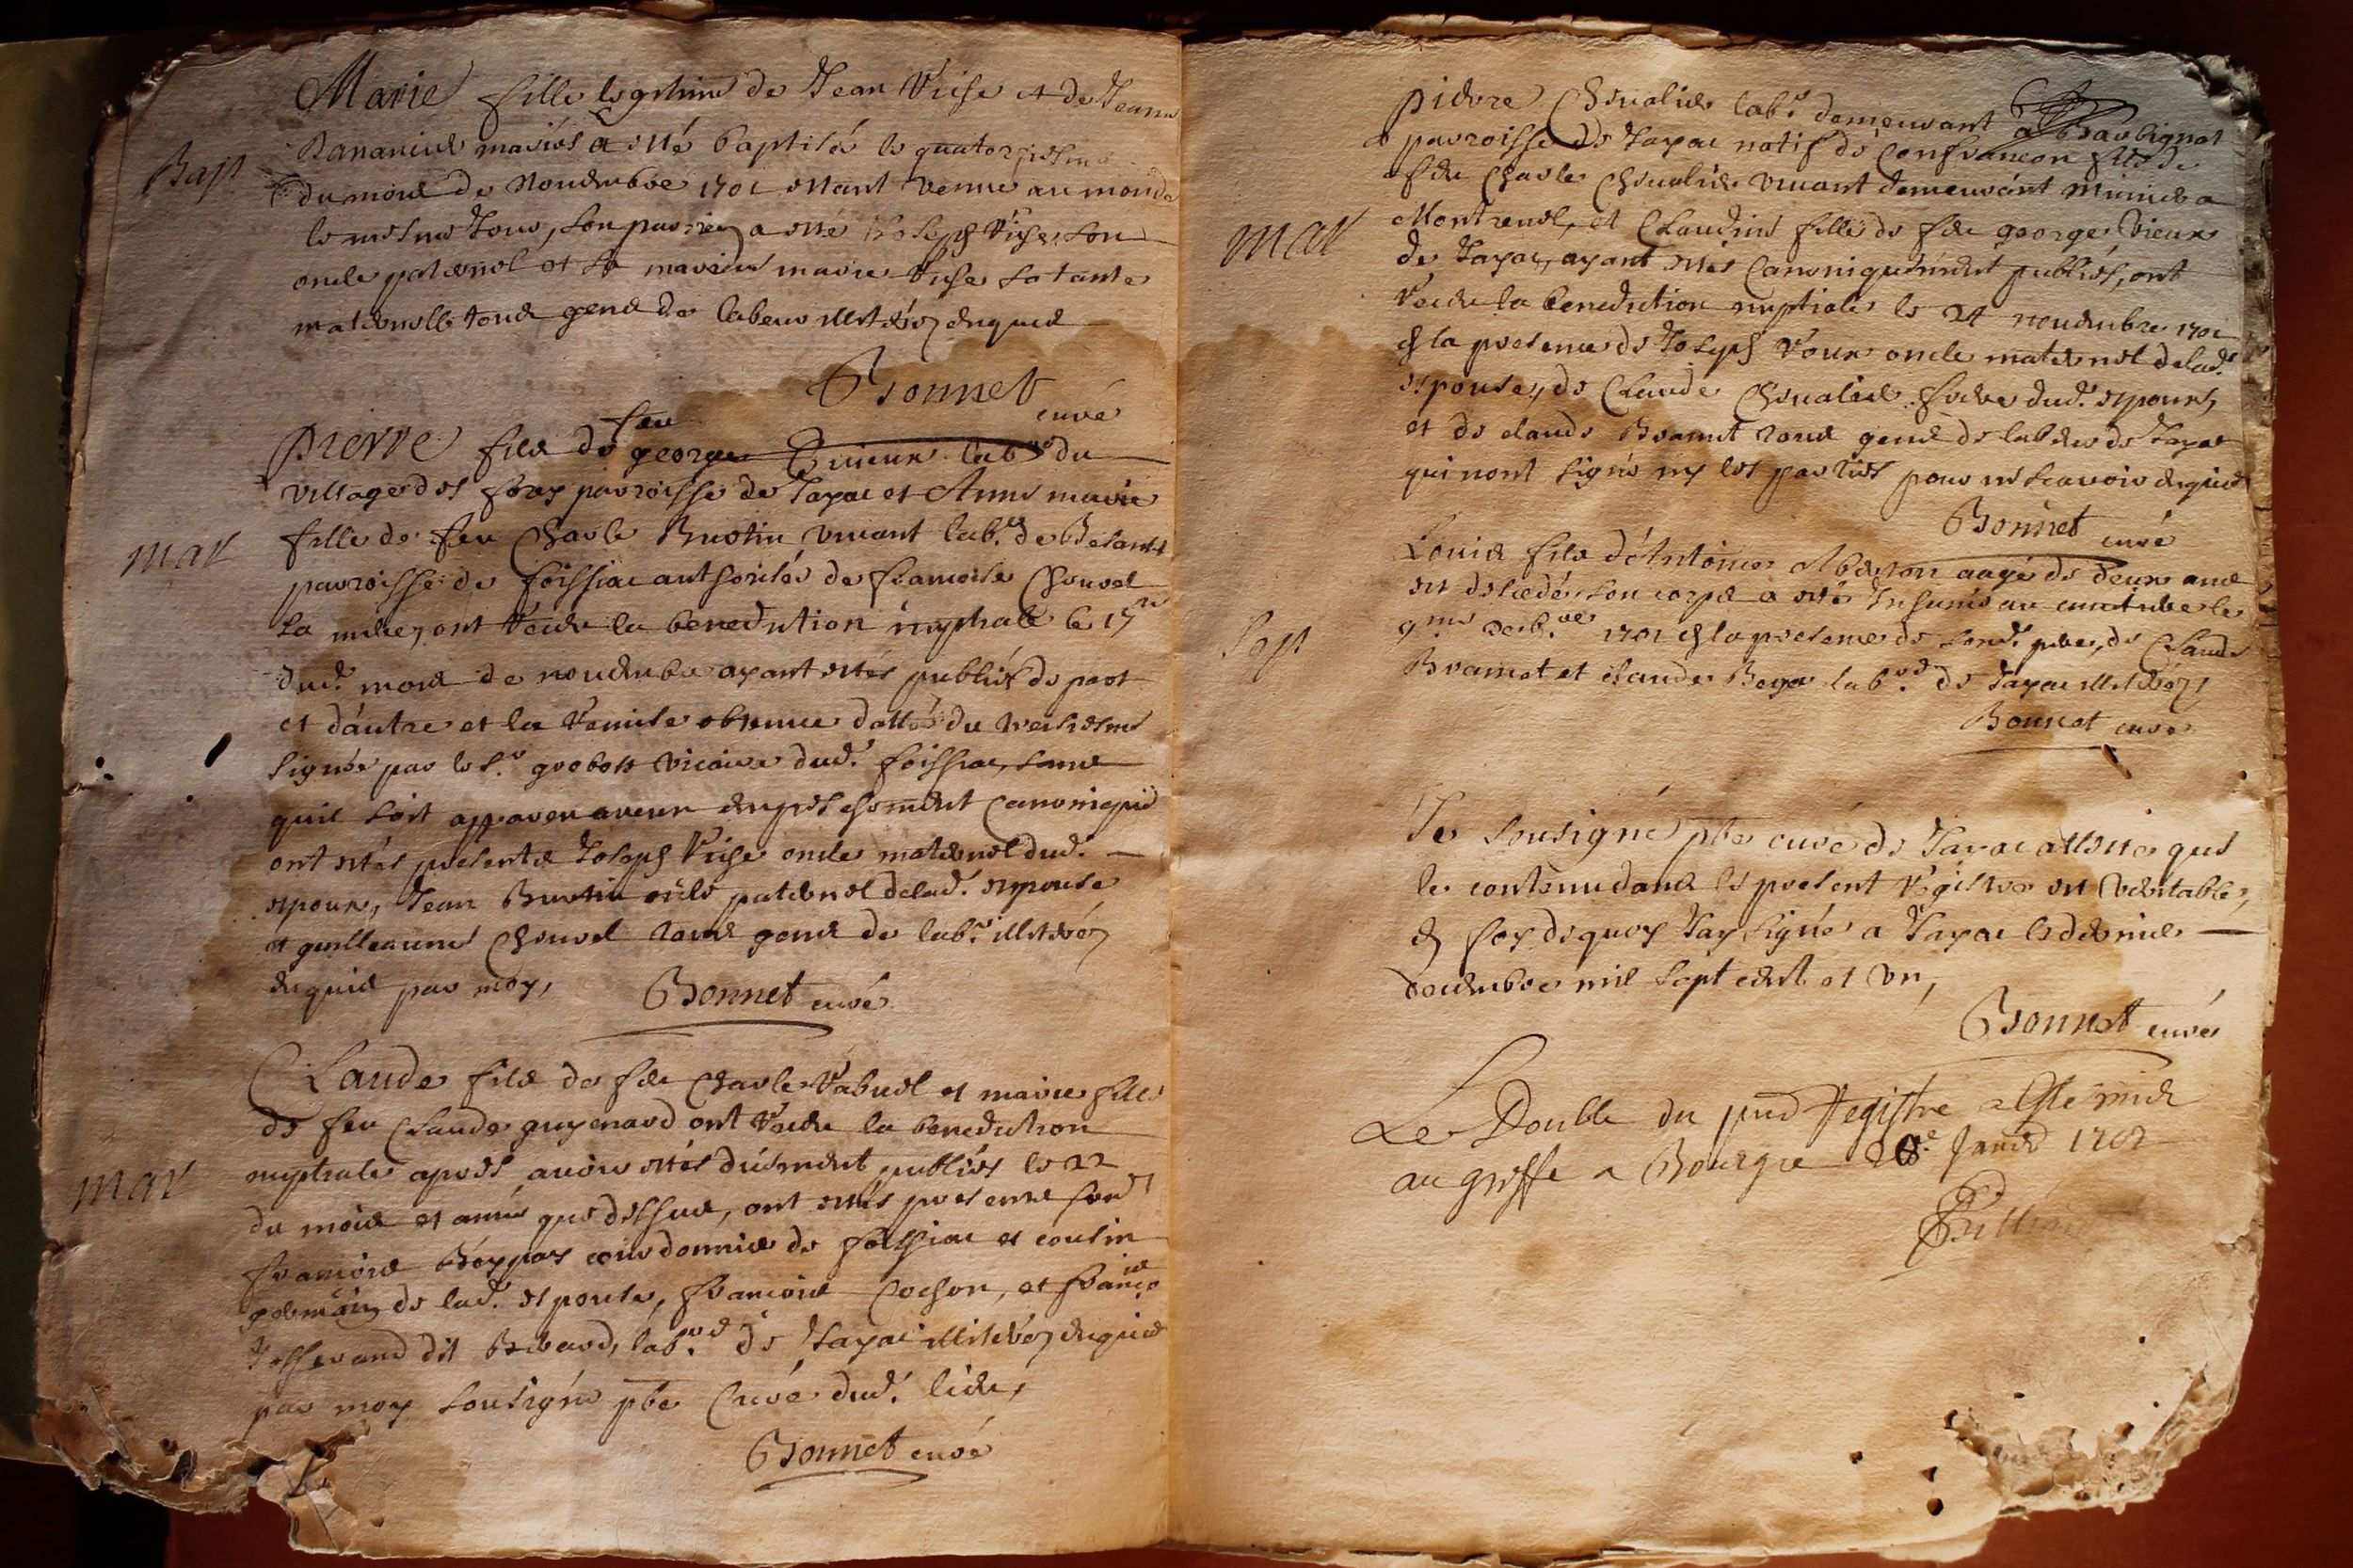 Marie fille legitime de Jean Vise et de Jeanne
mariés a esté baptisée le quatorziesme
Bapt
du mois de Novembre 1701 estant venue au monde
le mesme Jour, son parrein a esté Joseph Vise, son
oncle paternel et sa mareine marie Vise sa tante
maternelle tous gens de labeur illiterez enquis
Bonnet curé
pierre fils de feu george Vieux lab.r du
village des foray parroisse de Jayac et Anne marie
mar
fille de feu Charle Burtin vivant lab.r de
parroisse de foissiac authorisée de francoise Chouvel
sa mere, ont Receu la benediction nuptiale le 15
dud. mois de novembre ayant estés publiés de part
et d'autre et la Remise obtenue dattée du treiziesme
signée par le S.r vicaire dud. foissiac, sans
quil soit apparu aucun empeschement canonique
ont estés presents Joseph Vise oncle maternel dud.
espoux, Jean Burtin oncle paternel de lad. espouse
et guilleaume Chouvel tous gens de lab.r illiterez
enquis par moy, Bonnet curé
Claude fils de feu Charle Rabuel et marie fille
de feu Claude guyenard ont Receu la benediction
mar
nuptiale apres avoir estés düement publiés le 22
du mois et année que dessus, ont estés presents
francois cordonnier de foissiac et cousin
germain de lad. espouse, francois Cochon, et francois
Josserand dit lab.rs de Jayac illiterez enquis
par moy sousigné pbre Curé dud. lieu,
Bonnet curé
pierre Chevalier lab.r demeurant a
parroisse de Jayac natif de Confrancon fils de
feu Charle Chevalier vivant demeurant munier a
mar
Montrevel, et Claudine fille de feu george Vieux
de Jayac, ayant estés Canoniquement publiés, ont
Receu la benediction nuptiale le 24 novembre 1701
en la presence de Joseph Roux oncle maternel de lad.
espouse, de Claude Chevalier frere dud. espoux,
et de claude Bramet tous gens de labeur de Jayac
qui n'ont signé ny les parties pour ne scavoir enquis
Bonnet curé
Louis fils d'Antoine aagé de deux ans
est decedé son corps a esté Inhumé au cimetiere le
Sep
9.me Xb.re 1701 en la presence de sond. pere, de Claude
Bramet et claude Boyer lab.rs de Jayac illiterez,
Bonnet curé
Je sousigné pbre curé de Jayac atteste que
le contenu dans le present Registre est veritable,
en foy de quoy J'ay signé a Jayac le dernier
decembre mil sept cent et un,
Bonnet curé
Le Double du pnt Registre a esté mis
au greffe a Bourg ce 28.e Janv 1702